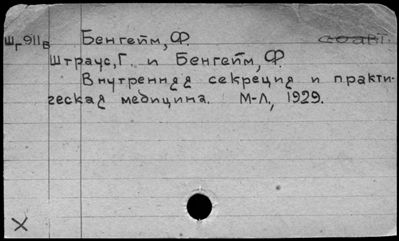 Шг911в Бенгейм, Ф. соавт.
Штраус, Г. и Бенгейм, Ф.
Внутренняя секреция и практи-
ческая медицина. М-Л., 1929.
X